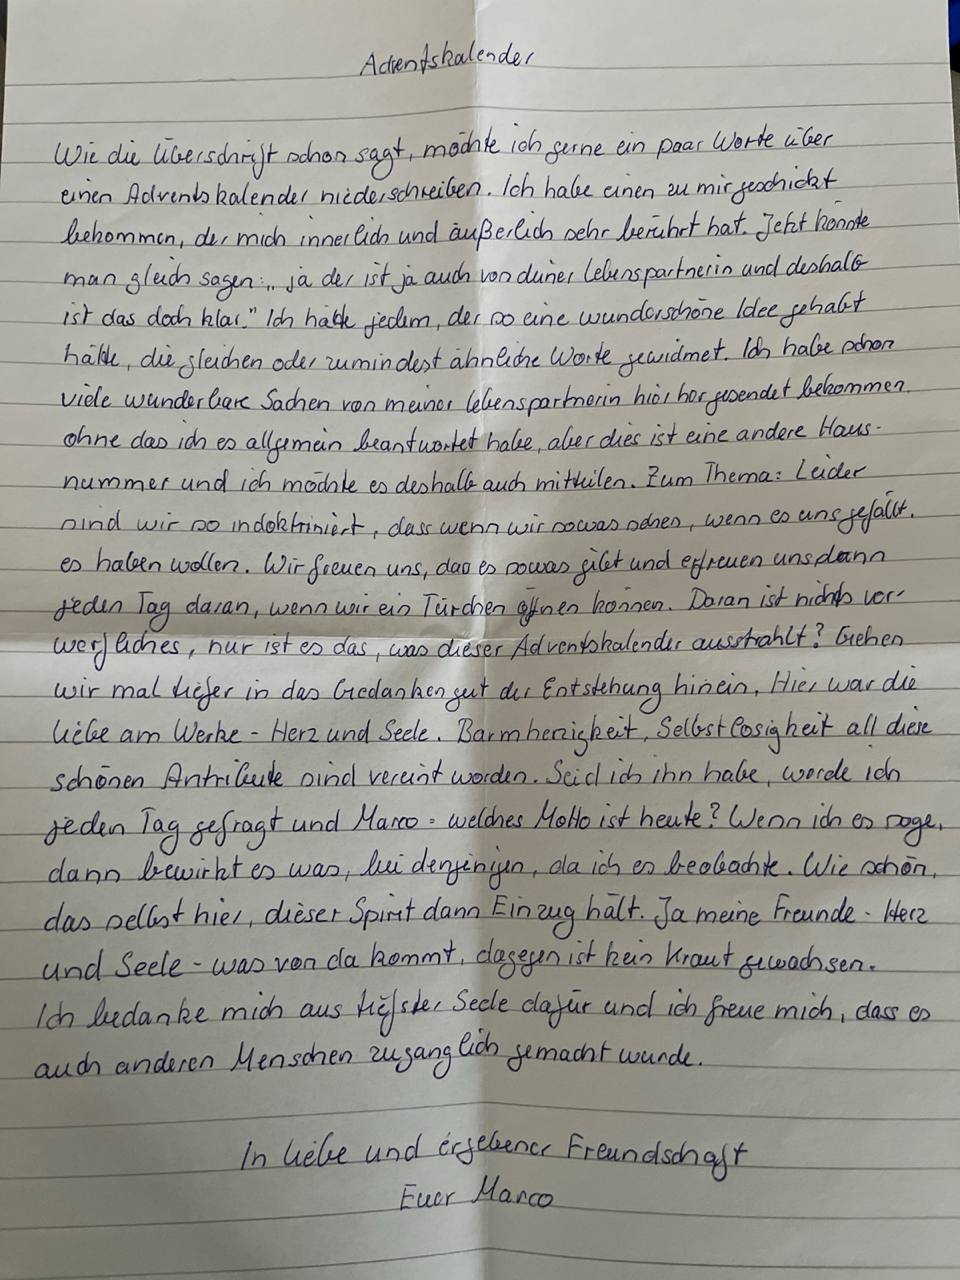 Adventskalender
Wie die Überschrift schon sagt, möchte ich gerne ein paar Worte über
einen Adventskalender niederschreiben. Ich habe einen zu mir geschickt
bekommen, der mich innerlich und äußerlich sehr berührt hat. Jetzt könnte
man gleich sagen: „ja der ist ja auch von deiner Lebenspartnerin und deshalb
ist das doch klar." Ich hätte jedem, der so eine wunderschöne Idee gehabt
hätte, die gleichen oder zumindest ähnliche Worte gewidmet. Ich habe schon
viele wunderbare Sachen von meiner Lebenspartnerin hierher gesendet bekommen,
ohne das ich es allgemein beantwortet habe, aber dies ist eine andere Haus-
nummer und ich möchte es deshalb auch mitteilen. Zum Thema: Leider
sind wir so indoktriniert, dass wenn wir sowas sehen, wenn es uns gefällt,
es haben wollen. Wir freuen uns, das es sowas gibt und erfreuen uns dann
jeden Tag daran, wenn wir ein Türchen öffnen können. Daran ist nichts ver-
werfliches, nur ist es das, was dieser Adventskalender ausstrahlt? Gehen
wir mal tiefer in das Gedankengut der Entstehung hinein. Hier war die
Liebe am Werke - Herz und Seele. Barmherzigkeit, Selbstlosigkeit all diese
schönen Antribute sind vereint worden. Seid ich ihn habe, werde ich
jeden Tag gefragt und Marco - welches Motto ist heute? Wenn ich es sage,
dann bewirkt es was, bei denjenigen, da ich es beobachte. Wie schön,
das selbst hier, dieser Spirit dann Einzug hält. Ja meine Freunde - Herz
und Seele - was von da kommt, dagegen ist kein Kraut gewachsen.
Ich bedanke mich aus tiefster Seele dafür und ich freue mich, dass es
auch anderen Menschen zugänglich gemacht wurde.
In Liebe und ergebener Freundschaft
Euer Marco